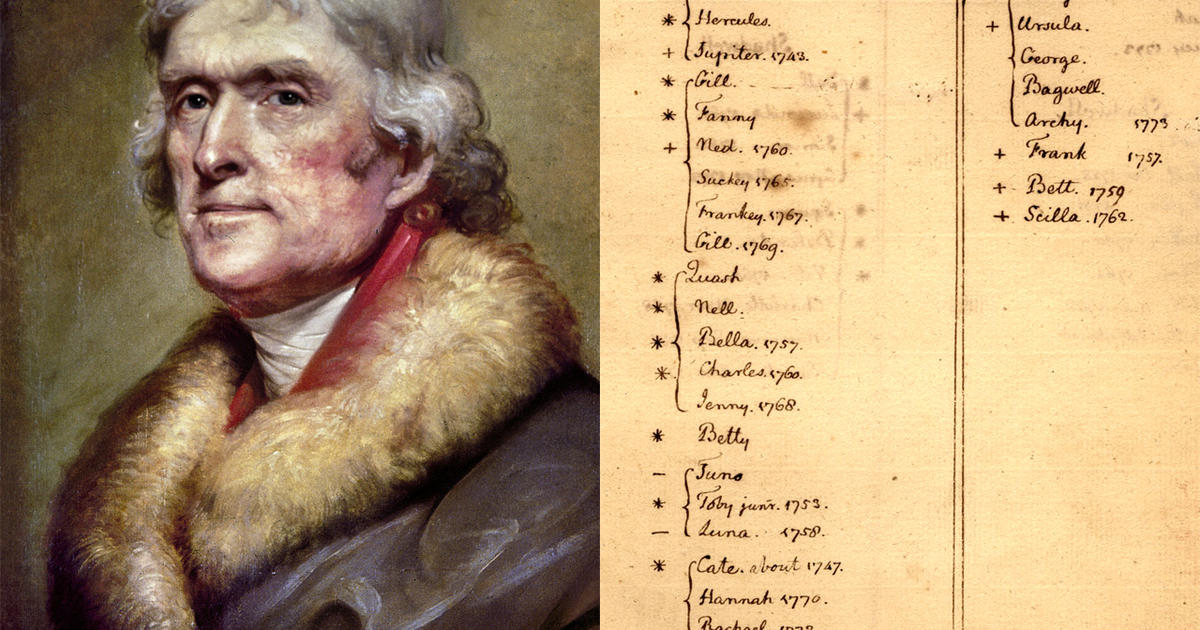 * Hercules.
+ Jupiter. 1743.
* Gill.
* Fanny
+ Ned. 1760.
Suckey 1765.
Frankey. 1767.
Gill. 1769.
* Quash
* Nell.
* Bella. 1757.
* Charles. 1760.
Jenny. 1768.
* Betty
– Juno
* Toby junr. 1753.
– Luna. 1758.
* Cate. about 1747.
Hannah 1770.
Rachael. 1773.
+ Ursula.
George.
Bagwell.
Archy. 1773
+ Frank 1757.
+ Bett. 1759
+ Scilla. 1762.